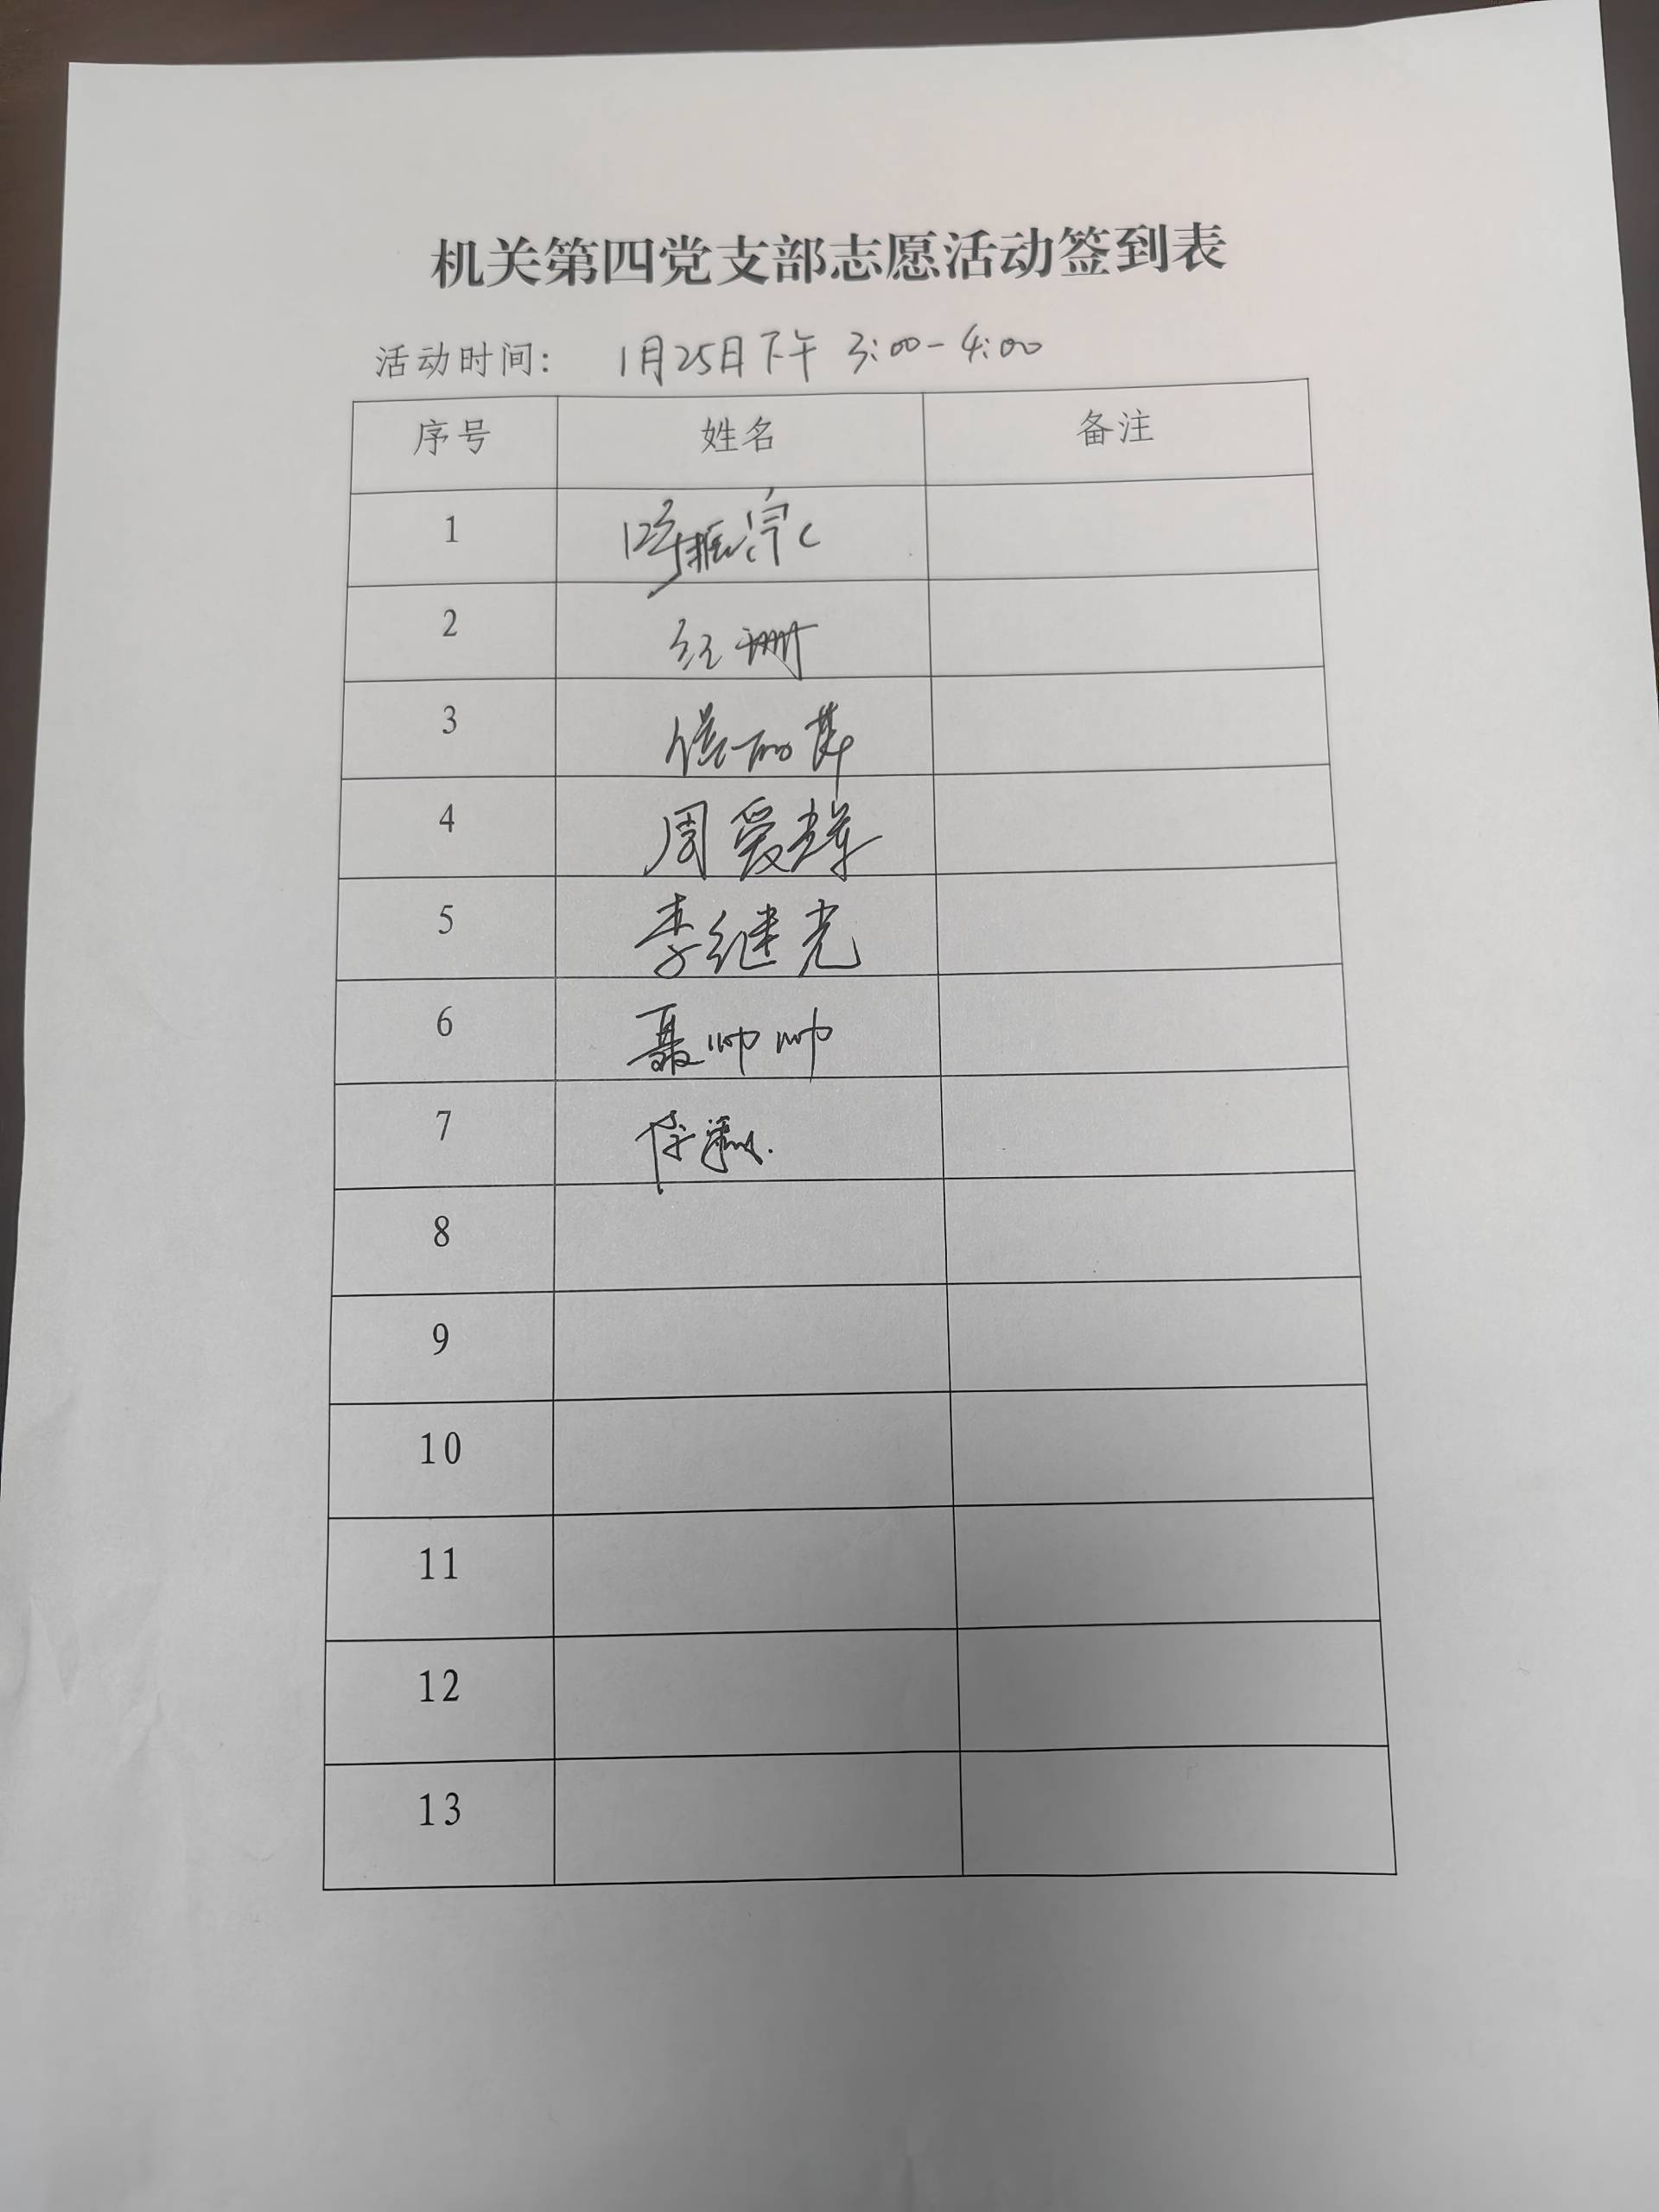 机关第四党支部志愿活动签到表
活动时间: 1月25日下午 3:00-4:00
序号 姓名 备注
1
2 红珊
3
4 周爱辉
5 李继光
6 聂帅帅
7 徐
8
9
10
11
12
13